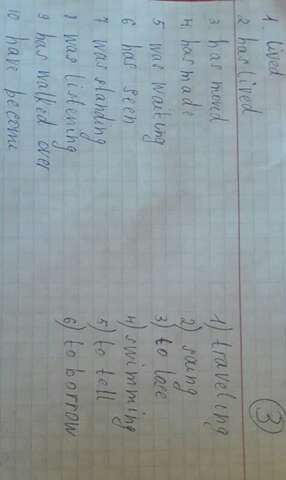 1. lived
2 has lived
3 has moved
4 has made
5 was waiting
6 has seen
7 was standing
8 was listening
9 has walked over
10 have become
3
1) traveling
2) saing
3) to lace
4) swimming
5) to tell
6) to borrow